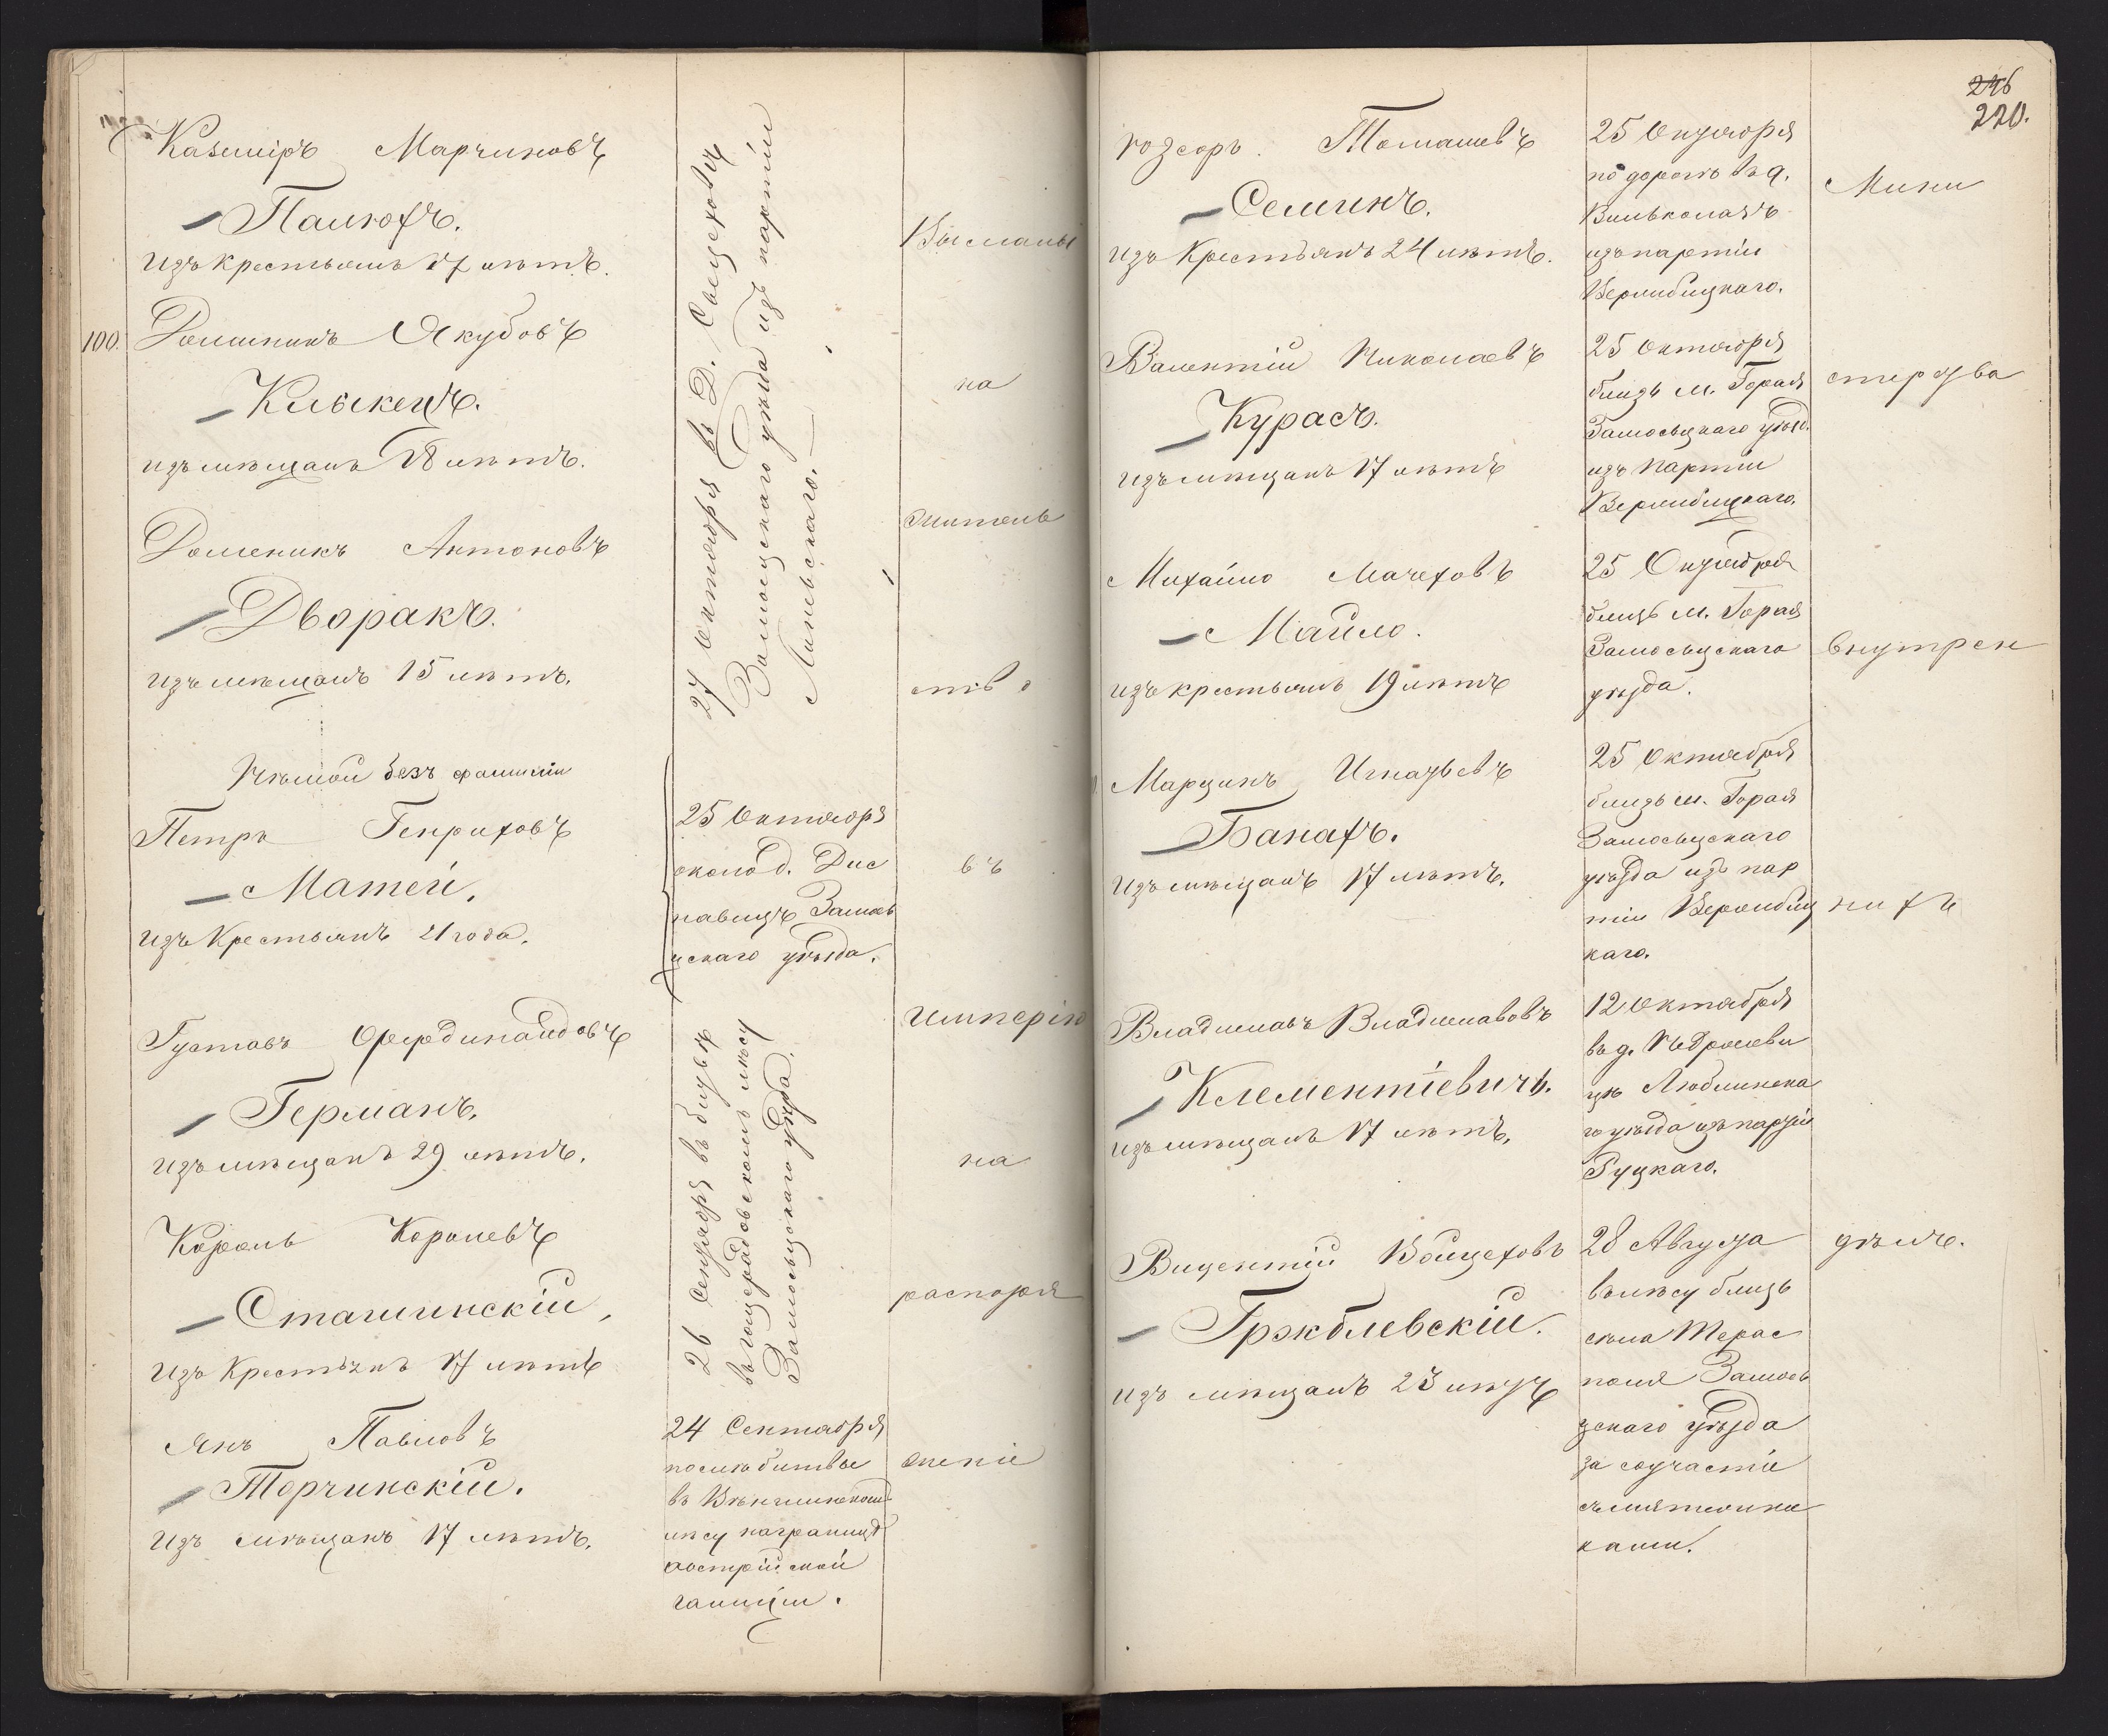 Казимiръ Марчиновъ
Палюхъ.
изъ крестьянъ 17 лѣтъ.
100. Доминикъ Якубовъ
Клыкецъ.
изъ мѣщанъ 18 лѣтъ.
Доменикъ Антоновъ
Дворакъ.
изъ мѣщанъ 15 лѣтъ.
Нѣмой безъ фамилiи
Петръ Генриховъ
Матей.
изъ Крестьянъ 21 года.
Густавъ Фердинандовъ
Германъ.
изъ мѣщанъ 29 лѣтъ.
Кароль Каролевъ
Сташинскiй,
изъ Крестьянъ 17 лѣтъ
Янъ Павловъ
Торчинскiй.
изъ мѣщанъ 17 лѣтъ.
27 Октября въ Д.
Замойскаго уѣзда изъ партiи
25 Октября
около д.
Замось
цскаго уѣзда.
26 Сентября въ битвѣ
въ лѣсу
Замосьцскаго уѣзда.
24 Сентября
послѣ битвы
въ
лѣсу на границѣ
австрiйской
галицiи.
Высланы
на
житель
ство
въ
Имперiю
на
распоря
женiе
246
220.
Томашевъ
Семинъ.
изъ Крестьянъ 24 лѣтъ.
Валентiй Николаевъ
Курасъ.
изъ мѣщанъ 17 лѣтъ
Михайло
Майло.
изъ крестьянъ 19 лѣтъ
Марцинъ Игнатьевъ
Банахъ.
изъ мѣщанъ 17 лѣтъ.
Владиславъ Владиславовъ
Клементiевичъ.
изъ мѣщанъ 17 лѣтъ.
Вицентiй Войцеховъ
Грэкблевскiй.
изъ мѣщанъ 23 лѣтъ
25 Октября
по дорогѣ въ д.
изъ партiи
Верлибицкаго.
25 Октября
близь м. Горая
Замосьцкаго уѣзд.
изъ партiи
Верлибицкаго.
25 Октября
близь м. Горая
Замосьцскаго
уѣзда.
25 Октября
близь м. Горая
Замосьцскаго
уѣзда изъ пар
тiи Верлибиц
каго.
12 Октября
въ д.
цѣ Люблинска
го уѣзда изъ партiи
Руцкаго.
28 Августа
въ лѣсу близь
села Терас
поля Замось
цскаго уѣзда
за соучастiе
съ мятежни
ками.
Мини
стерства
внутрен
нихъ
дѣлъ.